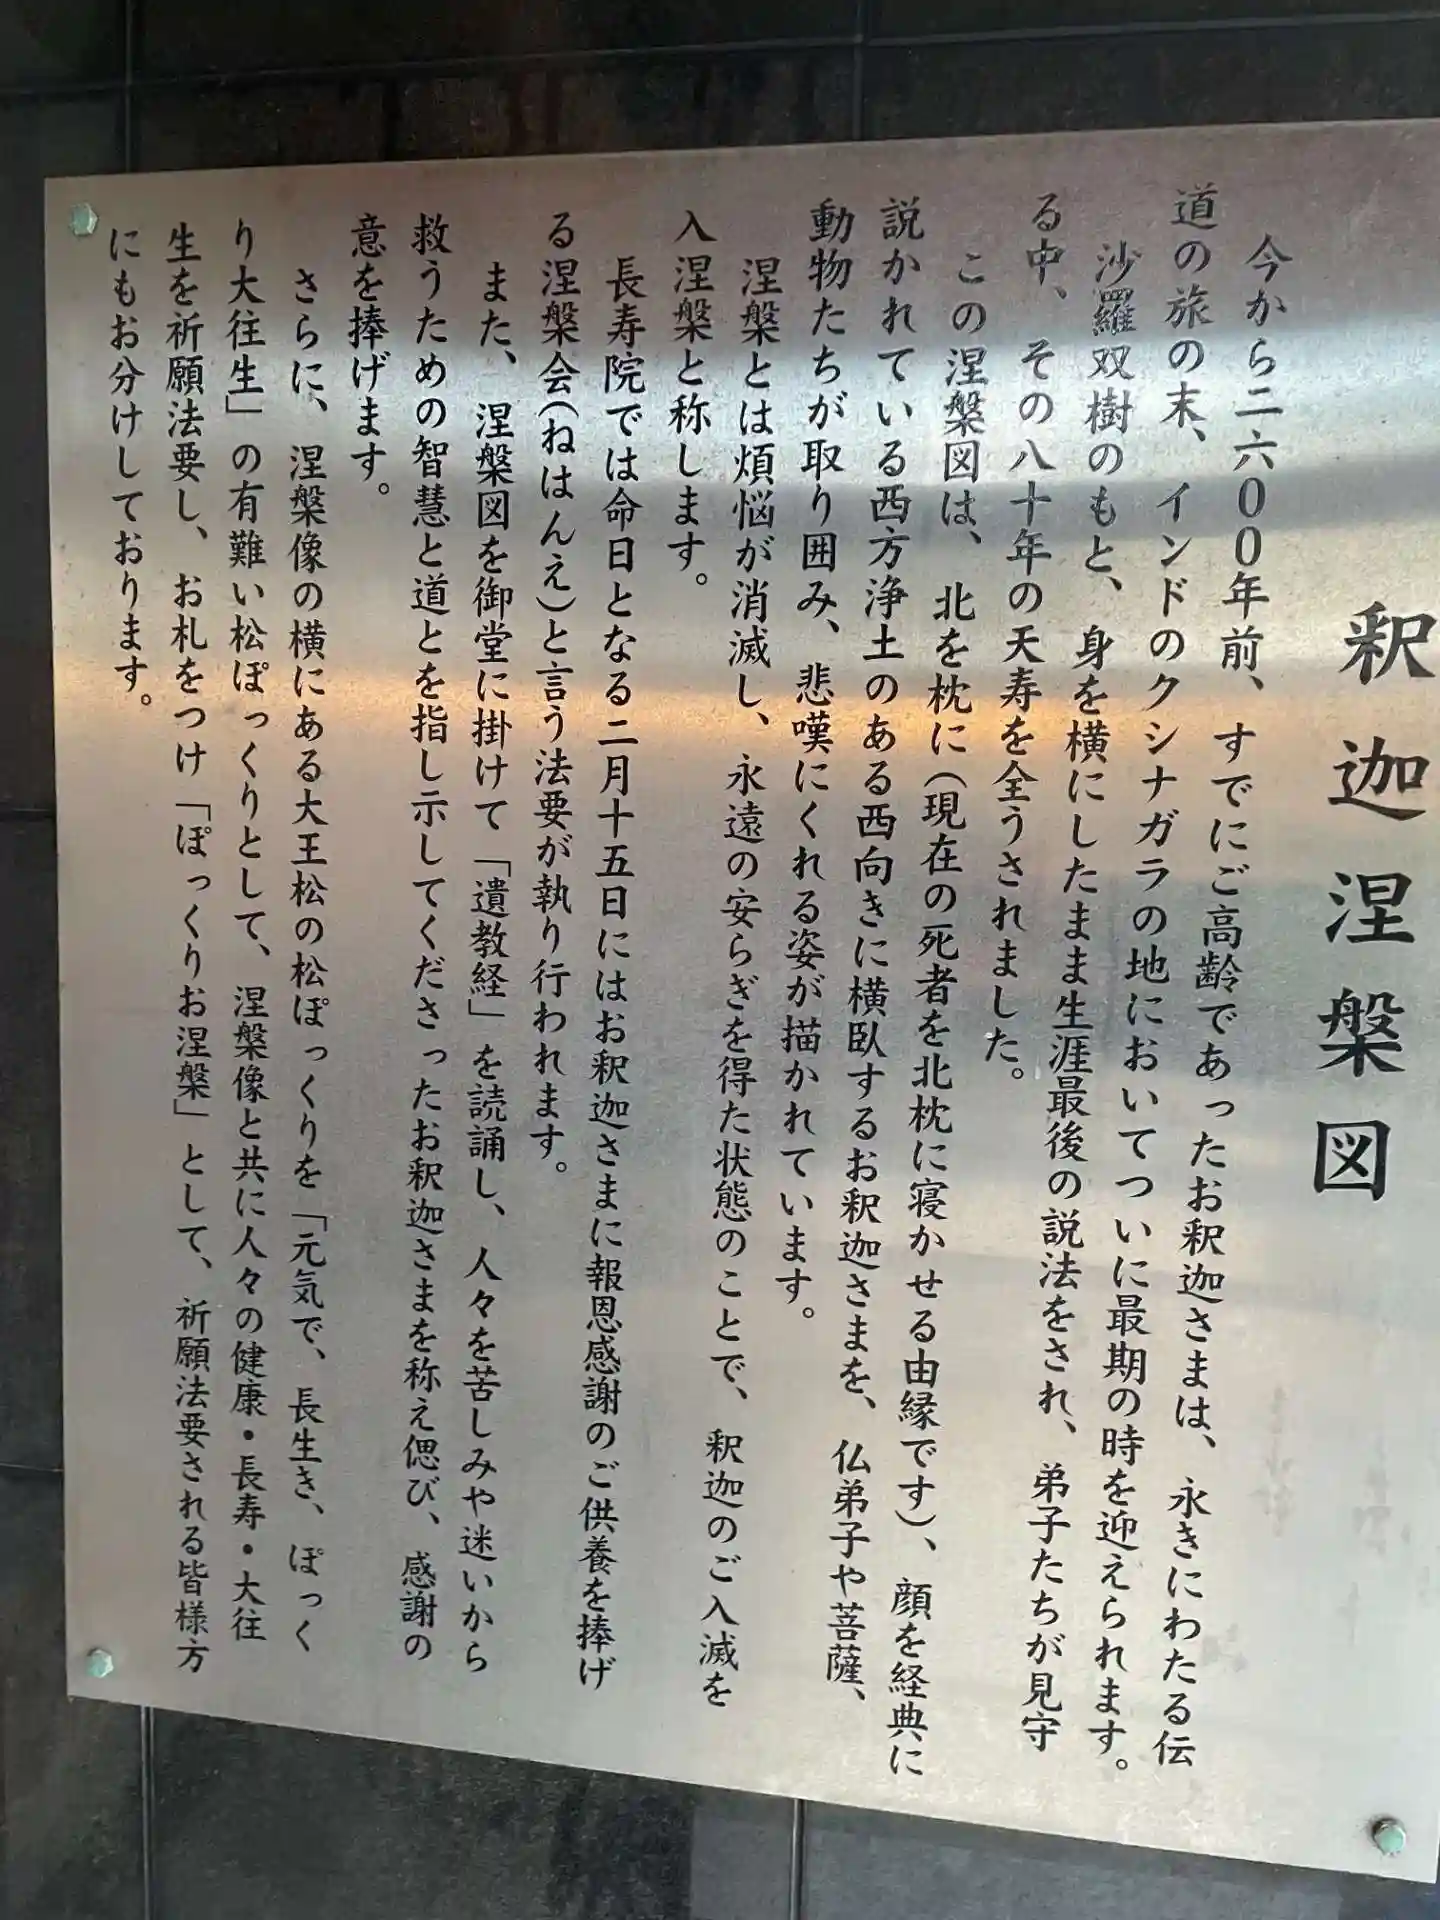 釈迦涅槃図
今から二六〇〇年前、すでにご高齢であったお釈迦さまは、永きにわたる伝
道の旅の末、インドのクシナガラの地においてついに最期の時を迎えられます。
沙羅双樹のもと、身を横にしたまま生涯最後の説法をされ、弟子たちが見守
る中、その八十年の天寿を全うされました。
この涅槃図は、北を枕に(現在の死者を北枕に寝かせる由縁です)、顔を経典に
説かれている西方浄土のある西向きに横臥するお釈迦さまを、仏弟子や菩薩、
動物たちが取り囲み、悲嘆にくれる姿が描かれています。
涅槃とは煩悩が消滅し、永遠の安らぎを得た状態のことで、釈迦のご入滅を
入涅槃と称します。
長寿院では命日となる二月十五日にはお釈迦さまに報恩感謝のご供養を捧げ
る涅槃会(ねはんえ)と言う法要が執り行われます。
また、涅槃図を御堂に掛けて「遺教経」を読誦し、人々を苦しみや迷いから
救うための智慧と道とを指し示してくださったお釈迦さまを称え偲び、感謝の
意を捧げます。
さらに、涅槃像の横にある大王松の松ぽっくりを「元気で、長生き、ぽっく
り大往生」の有難い松ぽっくりとして、涅槃像と共に人々の健康・長寿・大往
生を祈願法要し、お札をつけ「ぽっくりお涅槃」として、祈願法要される皆様方
にもお分けしております。